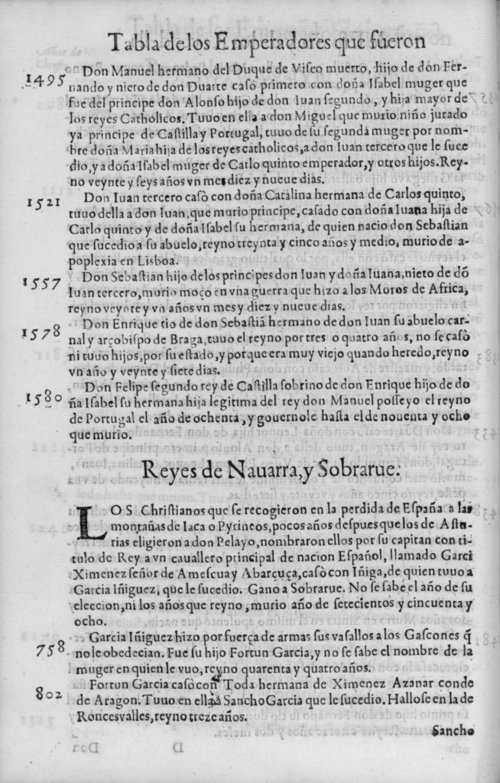 Tabla de los Emperadores que fueron
1495
Don Manuel hermano del Duque de Viseo muerto, hijo de don Fer-
nando y nieto de don Duarte casò primero con doña Isabel muger que
fue del principe don Alonso hijo de don Iuan segundo, y hija mayor de
los reyes Catholicos. Tuuo en ella a don Miguel que murio niño jurado
ya principe de Castilla y Portugal, tuuo de su segunda muger por nom-
bre doña Maria hija de los reyes catholicos, a don Iuan tercero que le suce
dio, y a doña Isabel muger de Carlo quinto emperador, y otros hijos. Rey-
no veynte y seys años vn mes diez y nueue dias.
1521
Don Iuan tercero casò con doña Catalina hermana de Carlos quinto,
tuuo della a don Iuan, que murio principe, casado con doña Iuana hija de
Carlo quinto y de doña Isabel su hermana, de quien nacio don Sebastian
que sucedio a su abuelo, reyno treynta y cinco años y medio, murio de a-
poplexia en Lisboa.
1557
Don Sebastian hijo de los principes don Iuan y doña Iuana, nieto de dõ
Iuan tercero, murio moço en vna guerra que hizo a los Moros de Africa,
reyno veynte y vn años vn mes y diez y nueue dias.
1578
Don Enrique tio de don Sebastiã hermano de don Iuan su abuelo car-
nal y arçobispo de Braga, tuuo el reyno por tres o quatro años, no se casò
ni tuuo hijos, por su estado, y porque era muy viejo quando heredo, reyno
vn año y veynte y siete dias.
1580
Don Felipe segundo rey de Castilla sobrino de don Enrique hijo de do
ña Isabel su hermana hija legitima del rey don Manuel posseyo el reyno
de Portugal el año de ochenta, y gouernole hasta el de nouenta y ocho
que murio.
Reyes de Nauarra, y Sobrarue.
LOS Christianos que se recogieron en la perdida de España a las
montañas de Iaca o Pyrineos, pocos años despues que los de Astu-
rias eligieron a don Pelayo, nombraron ellos por su capitan con ti-
tulo de Rey a vn cauallero principal de nacion Español, llamado Garci
Ximenez señor de Amescua y Abarçuça, casò con Iñiga, de quien tuuo a
Garcia Iñiguez, que le sucedio. Gano a Sobrarue. No se sabe el año de su
eleccion, ni los años que reyno, murio año de setecientos y cincuenta y
ocho.
758
Garcia Iñiguez hizo por fuerça de armas sus vasallos a los Gascones q̃
no le obedecian. Fue su hijo Fortun Garcia, y no se sabe el nombre de la
muger en quien le vuo, reyno quarenta y quatro años.
802
Fortun Garcia casò con Toda hermana de Ximenez Azanar conde
de Aragon. Tuuo en ella a Sancho Garcia que le sucedio. Hallose en la de
Roncesvalles, reyno treze años.
Sancho